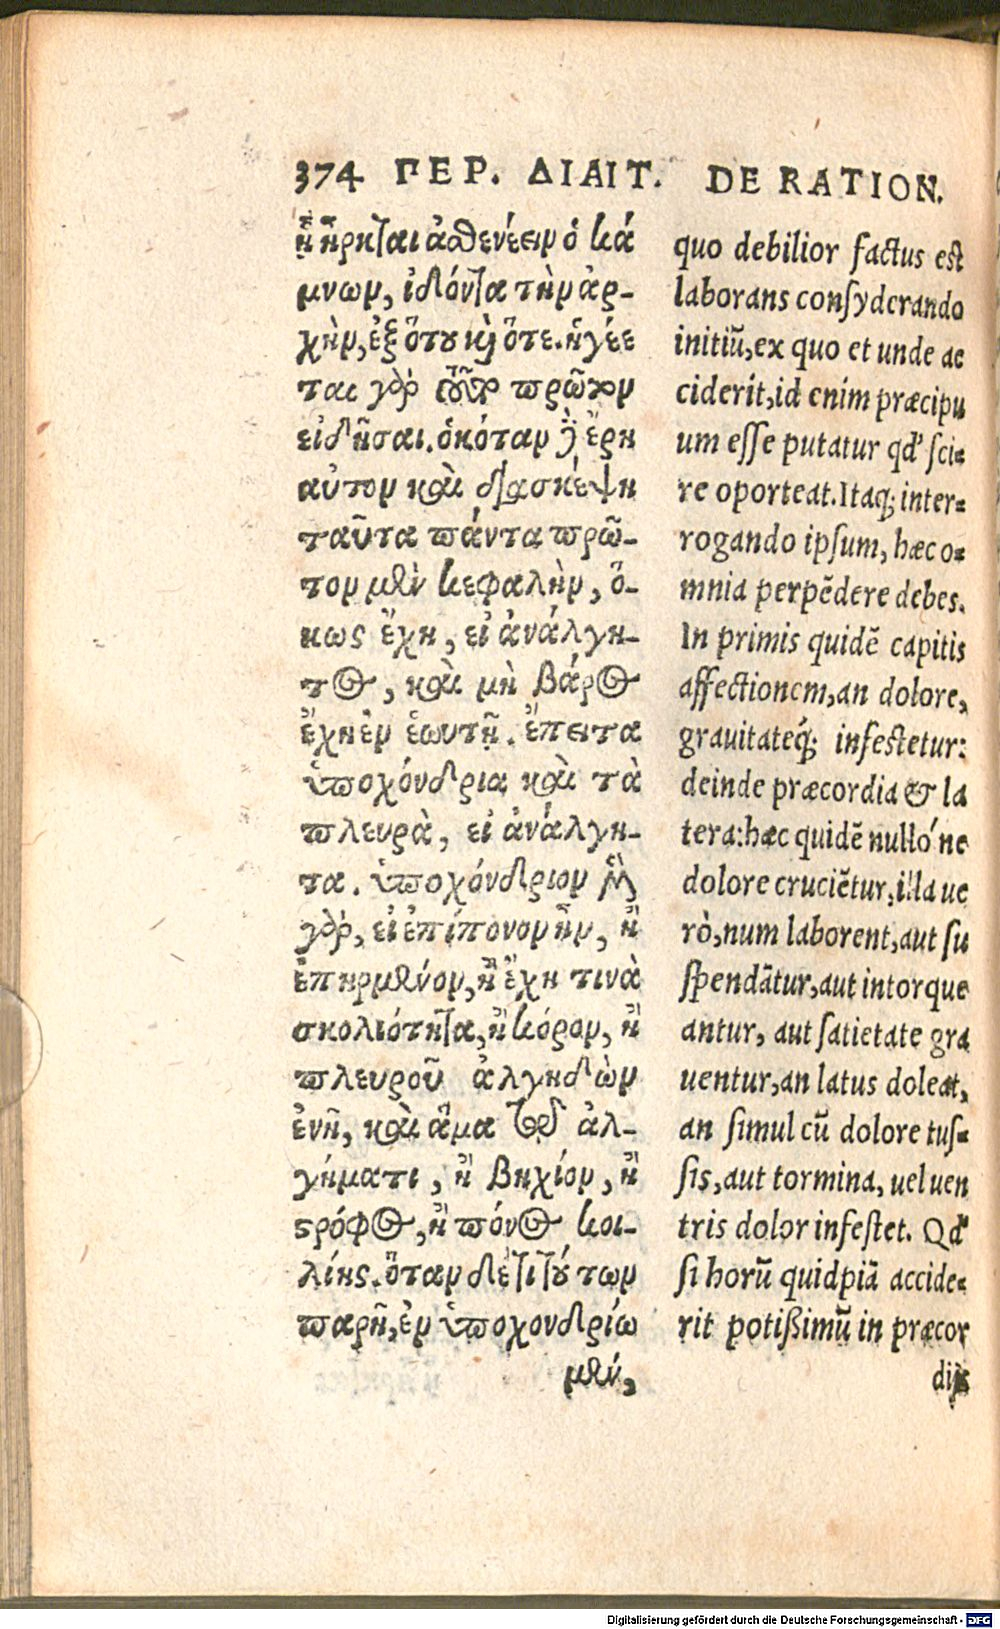 374 ΠΕΡ. ΔΙΑΙΤ. DE RATION.
ᾗ ἤρκται ἀσθενέειν ὁ κά
μνων, ἰδόντα τὴν ἀρ-
χὴν, ἐξ ὅτου καὶ ὅτε. ἡγέε
ται γὰρ πρῶτον
εἰδῆσαι. ὁκόταν δὲ ἔρῃ
αὐτον καὶ διασκέψῃ
ταῦτα πάντα πρῶ-
τον μὲν κεφαλὴν, ὅ-
κως ἔχῃ, εἰ ἀνάλγη-
τος, καὶ μὴ βάρος
ἔχῃ ἐν ἑωυτῇ. ἔπειτα
ὑποχόνδρια καὶ τὰ
πλευρὰ, εἰ ἀνάλγη-
τα. ὑποχόνδριον μὲν
γὰρ, εἰ ἐπίπονον ἦν, ἢ
ἐπηρμένον, ἢ ἔχῃ τινὰ
σκολιότητα, ἢ κόρον, ἢ
πλευροῦ ἀλγηδὼν
ἐνῇ, καὶ ἅμα τῷ ἀλ-
γήματι, ἢ βηχίον, ἢ
στρόφος, ἢ πόνος κοι-
λίης. ὅταν δέ τι τούτων
παρῇ, ἐν ὑποχονδρίω
μὲν,
quo debilior factus est
laborans consyderando
initiũ, ex quo et unde ac
ciderit, id enim præcipu
um esse putatur qd' sci-
re oporteat. Itaq; inter-
rogando ipsum, hæc o-
mnia perpẽdere debes.
In primis quidẽ capitis
affectionem, an dolore,
grauitateq́; infestetur:
deinde præcordia & la
tera: hæc quidẽ nullo' ne
dolore cruciẽtur, illa ue
rò, num laborent, aut su
spendãtur, aut intorque
antur, aut satietate gra
uentur, an latus doleat,
an simul cũ dolore tus-
sis, aut tormina, uel uen
tris dolor infestet. Qd'
si horũ quidpiã accide-
rit potißimũ in præcor
dijs
Digitalisierung gefördert durch die Deutsche Forschungsgemeinschaft - DFG